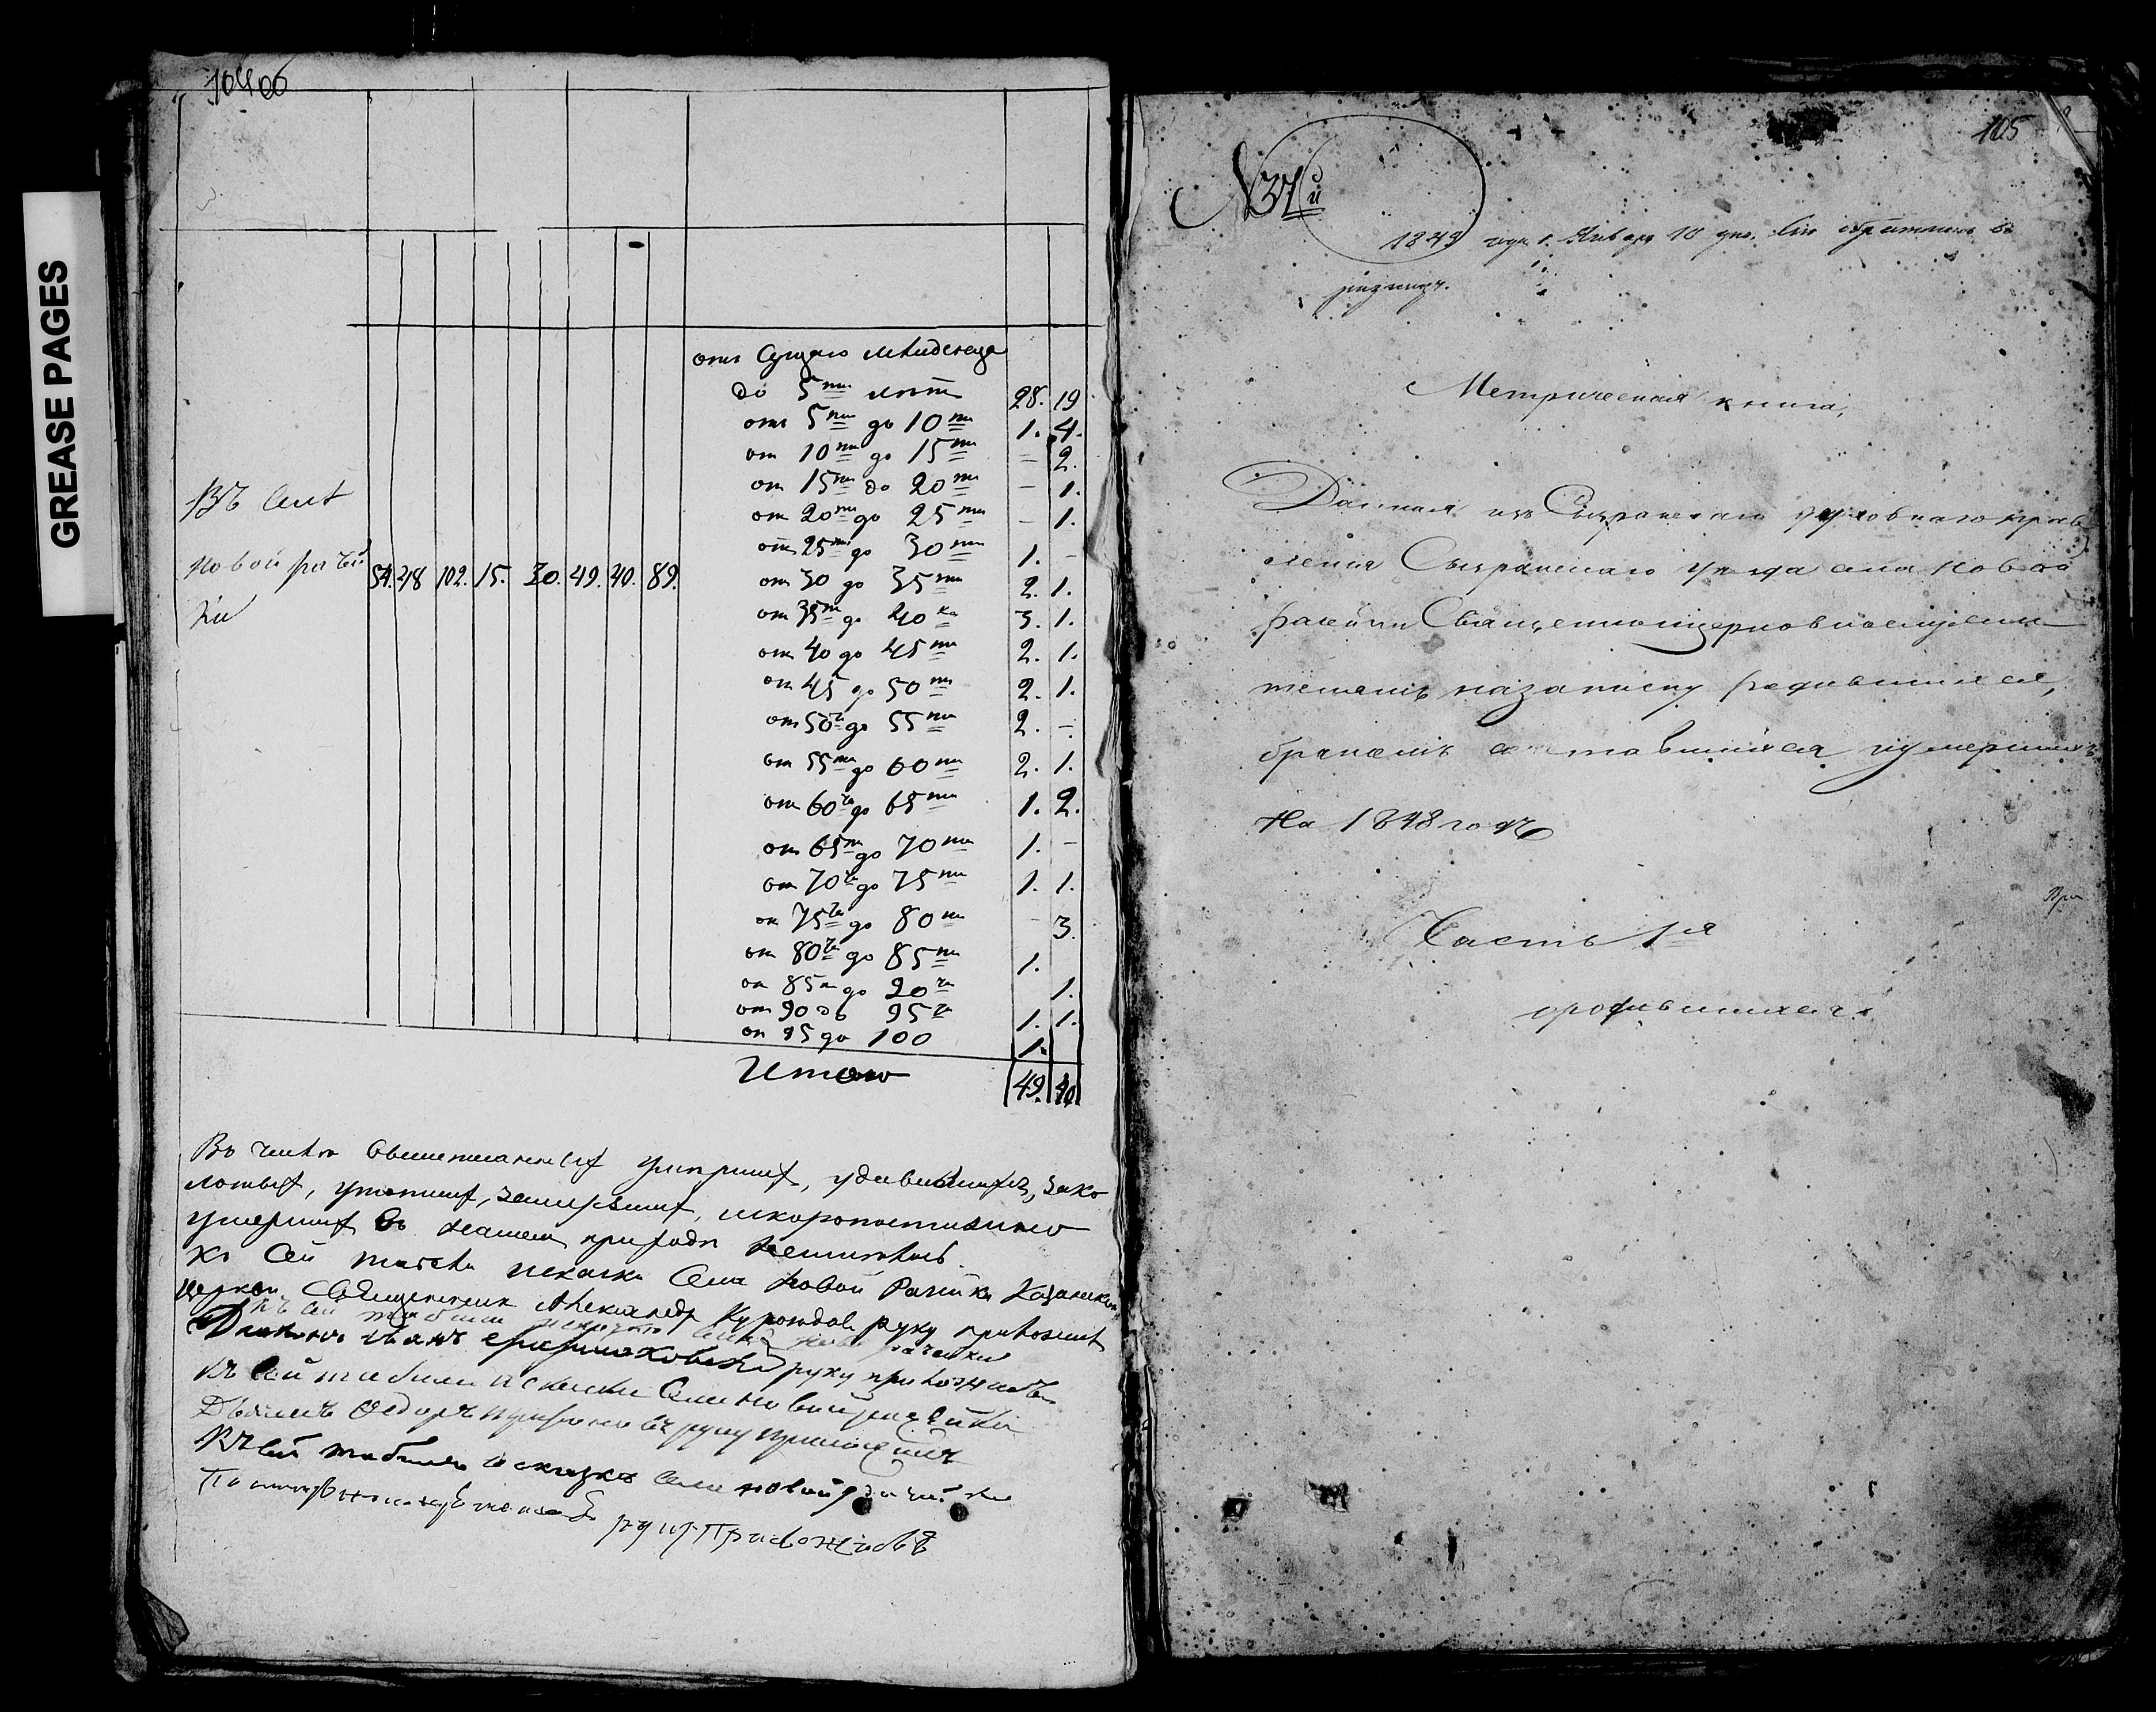 GREASE PAGES
Въ селѣ
новой рачей
ки
54. 48 102. 15. 30. 49. 40. 89.
отъ Сущаго младенца
до 5ти лѣтъ 28. 19
отъ 5ти до 10ти 1. 4.
от 10ти до 15ти – 2.
от 15ти до 20ти – 1.
от 20ти до 25ти – 1.
от 25ти до 30ти 1. –
от 30 до 35ти 2. 1.
от 35ти до 40ка 3. 1.
от 40 до 45ти 2. 1.
от 45 до 50ти 2. 1.
от 50ти до 55ти 2. –
от 55ти до 60ти 2. 1.
от 60ти до 65ти 1. 2.
от 65ти до 70ти 1. –
от 70ти до 75ти 1. 1.
от 75ти до 80ти – 3.
от 80ти до 85ти 1.
от 85ти до 90ти 1.
от 90 до 95ти 1. 1.
от 95 до 100 1.
Итого 49. 40
Въ числѣ умершихъ, удавившихся, зако
лотыхъ, утопшихъ, замерзшихъ, искоропостижно
умершихъ въ нашемъ приходѣ
Къ сей Села Новой Рачейки Казанской
церкви Священникъ Александръ руку приложилъ
Къ сей табели села новой рачейки
Диаконъ Иванъ руку приложилъ
Къ сей табели Села новой рачейки
Дьячекъ Ѳедоръ руку приложилъ
Къ сей табели села новой рачейки
Пономарь руку Приложилъ
105
№ 37й
1849 года Января 10 дня
Метрическая книга,
Данная изъ Сызранскаго духовнаго прав
ленія Сызранскаго уѣзда села новой
рачейки Священноцерковнослужи
телямъ на записку родившихся,
бракомъ сочетавшихся и умершихъ
На 1848 годъ
Часть 1я
о родившихся.